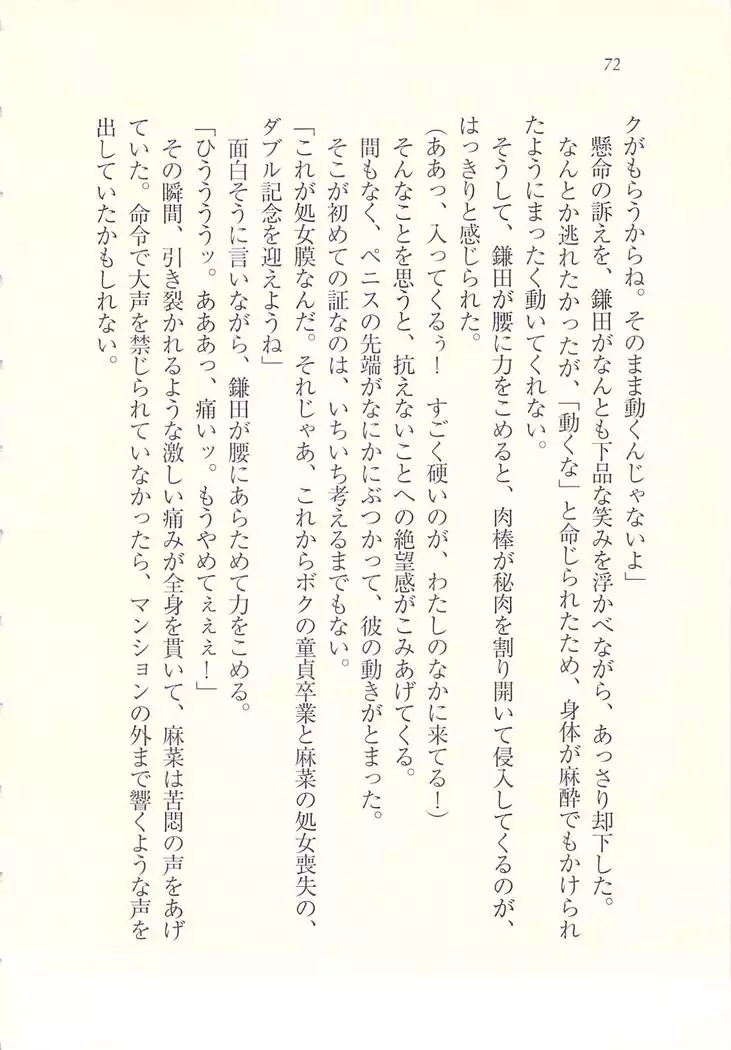 72
クがもらうからね。そのまま動くんじゃないよ」
　懸命の訴えを、鎌田がなんとも下品な笑みを浮かべながら、あっさり却下した。
　なんとか逃れたかったが、「動くな」と命じられたため、身体が麻酔でもかけられ
たようにまったく動いてくれない。
　そうして、鎌田が腰に力をこめると、肉棒が秘肉を割り開いて侵入してくるのが、
はっきりと感じられた。
（ああっ、入ってくるぅ！　すごく硬いのが、わたしのなかに来てる！）
　そんなことを思うと、抗えないことへの絶望感がこみあげてくる。
　間もなく、ペニスの先端がなにかにぶつかって、彼の動きがとまった。
　そこが初めての証なのは、いちいち考えるまでもない。
「これが処女膜なんだ。それじゃあ、これからボクの童貞卒業と麻菜の処女喪失の、
ダブル記念を迎えようね」
　面白そうに言いながら、鎌田が腰にあらためて力をこめる。
「ひうううゥッ。あああっ、痛いッ。もうやめてぇぇぇ！」
　その瞬間、引き裂かれるような激しい痛みが全身を貫いて、麻菜は苦悶の声をあげ
ていた。命令で大声を禁じられていなかったら、マンションの外まで響くような声を
出していたかもしれない。